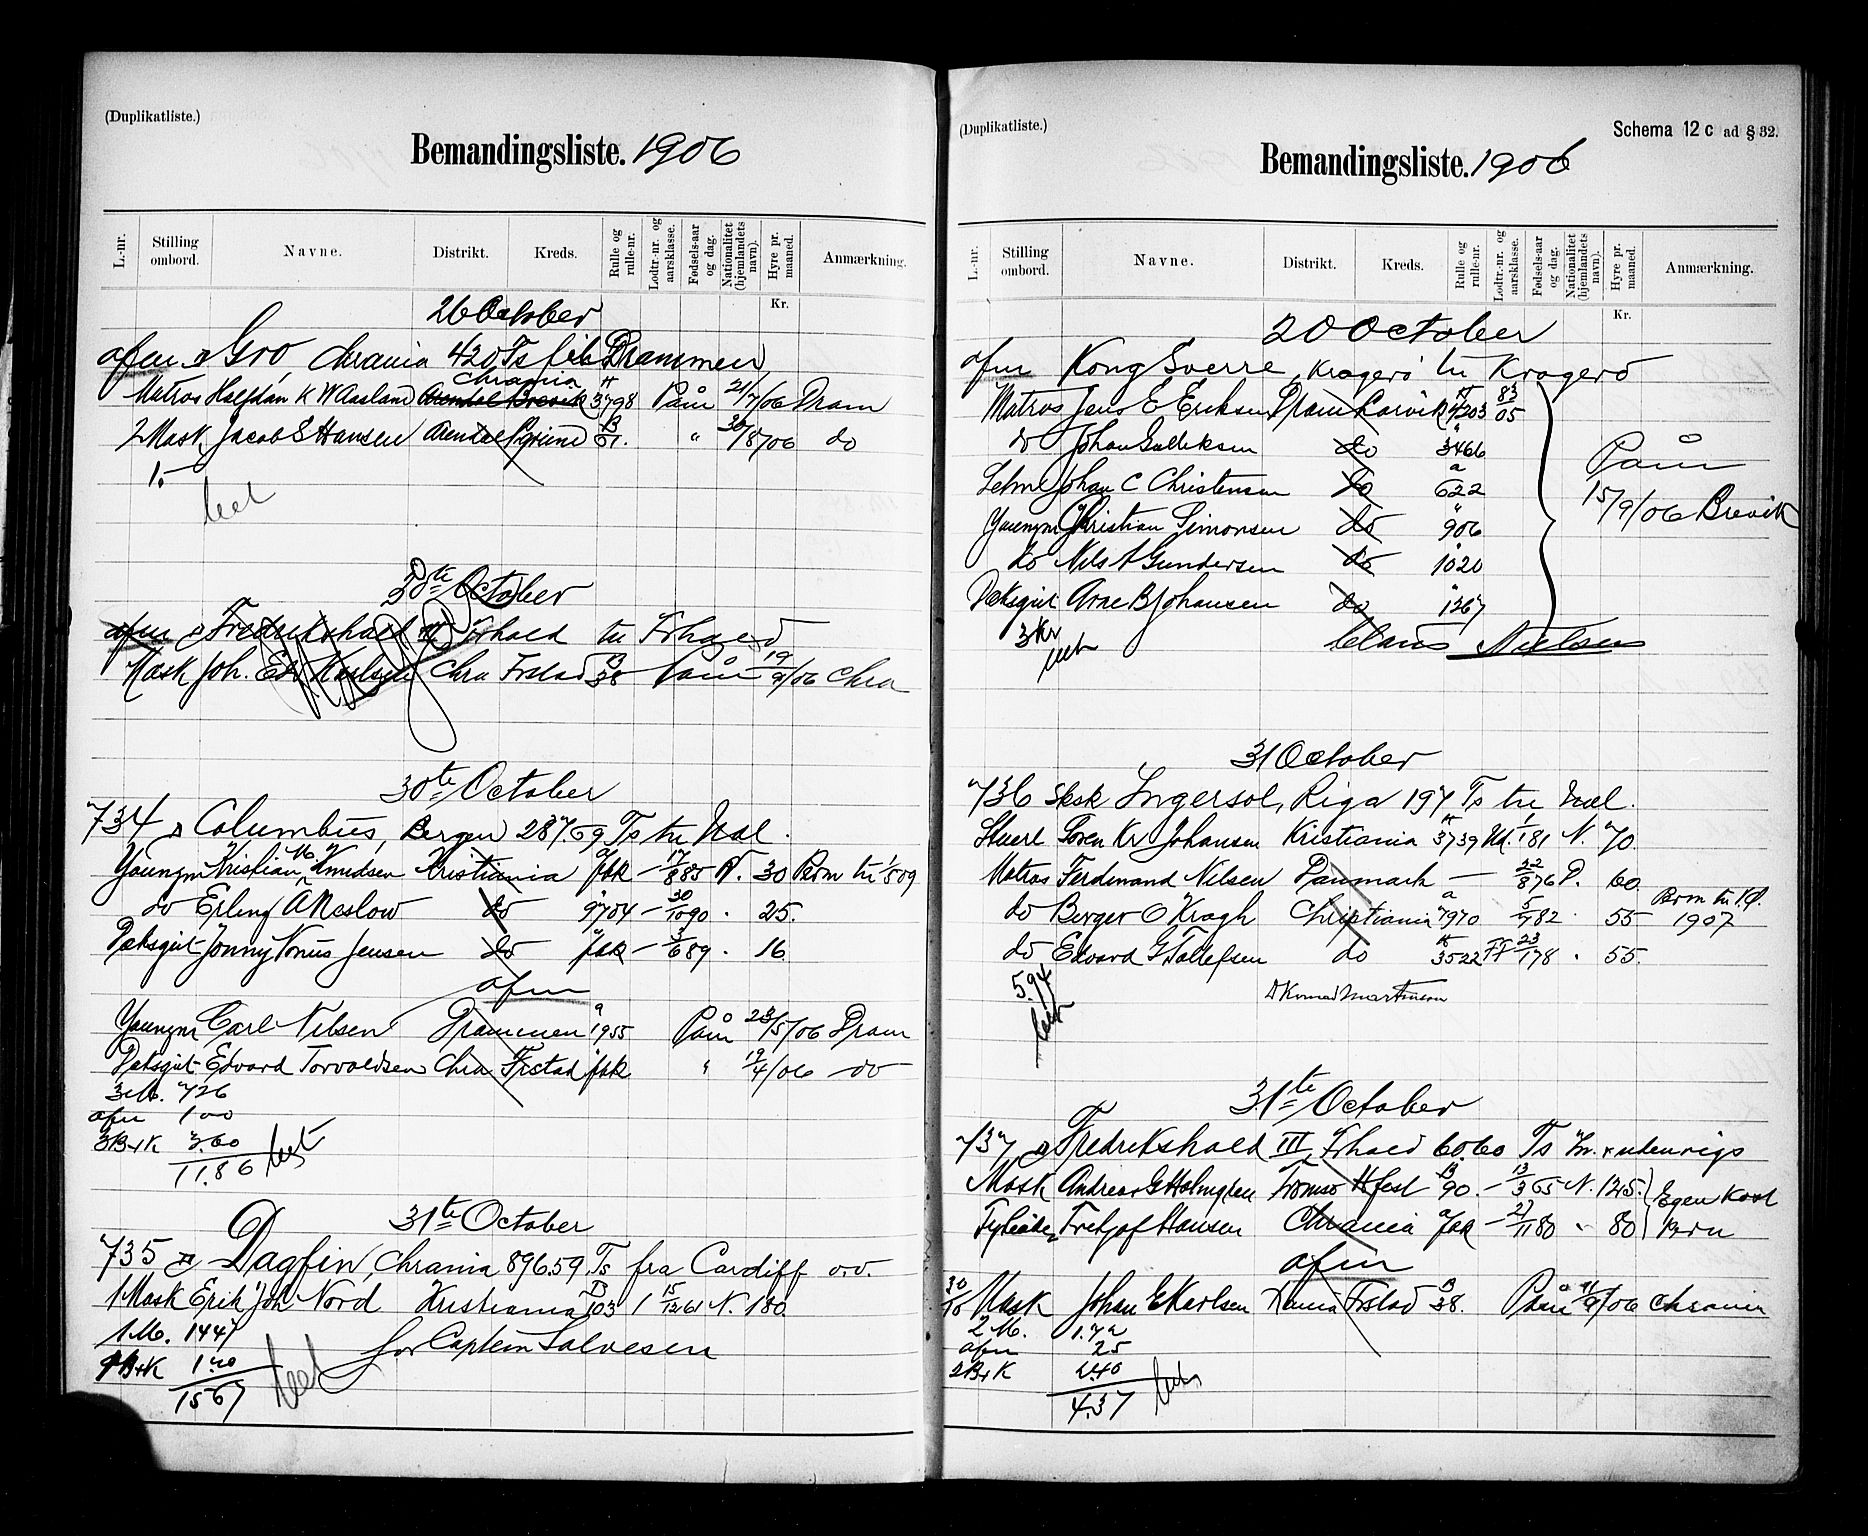 (Duplikatliste.)
Bemandingsliste. 1906
L.-nr. Stilling ombord. Navne. Distrikt. Kreds. Rulle og rulle-nr. Lodtr.-nr. og aarsklasse. Fødsels-aar og dag. Nationalitet (hjemlandets navn). Hyre pr. maaned. Anmærkning.
Kr.
26 October
afm D Gro, Chrania 420 Ts til Drammen
Chrania
Matros Halfdan K W Aasland Arendal Brevik 3798 Påm 21/7/06 Dram
2 Mask. Jacob S Hansen Arendal Pgrund B 61. " 30/8/06 do
1.-
30te October
afm D Fredrikshald Frhald til Frhald
Mask Joh. Edv Karlsen Chra Frstad B 38 Påm 19/9/06 Chra
30te October
734 D Columbus, Bergen 287.69 Ts til Udl.
Youngm Kristian M Knudsen Kristiania a fak - 17/8 85 N. 30
do Erling A Reslow do " 9704 - 30/10 90 . 25.
Dæksgut Jonny Nonus Jensen do fak - 3/6 89 . 16
afm
Youngm Carl Nilsen Drammen a 1955 Påm 23/5/06 Dram
Dæksgut Edvard Torvaldsen Chra Frstad fak " 19/4/06 do
3 M. 726
afm 100
3 B+K 3.60
11.86
31te October
735 D Dagfin, Chrania 896.59 Ts fra Cardiff o.v.
1 Mask Erik Joh Nord Kristiania B 103 1 15/12 61 N. 180
1 M. 1447
1 B+K 1.20
1567
for Captein Salvesen
(Duplikatliste.)
Schema 12 c ad § 32.
Bemandingsliste. 1906
L.-nr. Stilling ombord. Navne. Distrikt. Kreds. Rulle og rulle-nr. Lodtr.-nr. og aarsklasse. Fødsels-aar og dag. Nationalitet (hjemlandets navn). Hyre pr. maaned. Anmærkning.
Kr.
20 October
afm Kong Sverre, Kragerö til Kragerö
Matros Jens E Eriksen Dram Larvik H 4203 83/05
do Johan Gulliksen do " 3466
Johan C Christensen do a 622
Påm
15/9/06 Brevik
Youngm Christian Simonsen do " 906
do Nils A Gundersen do " 1020
Dæksgut Arne B Johansen do " 1267
3 Kr
Claus Nielsen
31 October
736 Sksk Ingersol, Riga 197 Ts til Udl.
Stuert Soren Kr Johansen Kristiania H 3739 1/1 81 N. 70
Matros Ferdinand Nilsen Danmark - 22/8 76 D. 60.
do Berger O Krogh Christiania a 7970 5/7 82 . 55
1907
do Edvard G Tollefsen do H 3522 FF 23/1 78 . 55.
5.94
31te October
737 D Fredrikshald III, Frhald 60.60 Ts In. + udenrigs
Mask Andreas G Holmgren Tromsö Hfest B 90. - 13/3 65 N. 125. Egen Kost
Fyrböder Fretjof Hansen Chrania a fak - 27/11 80 " 80
afm
30/10 Mask Johan E Karlsen Xania Frstad B 38. Påm 21/9/06 Chrania
2 M. 1.72
afm 25
2 B+K 2.40
4.37